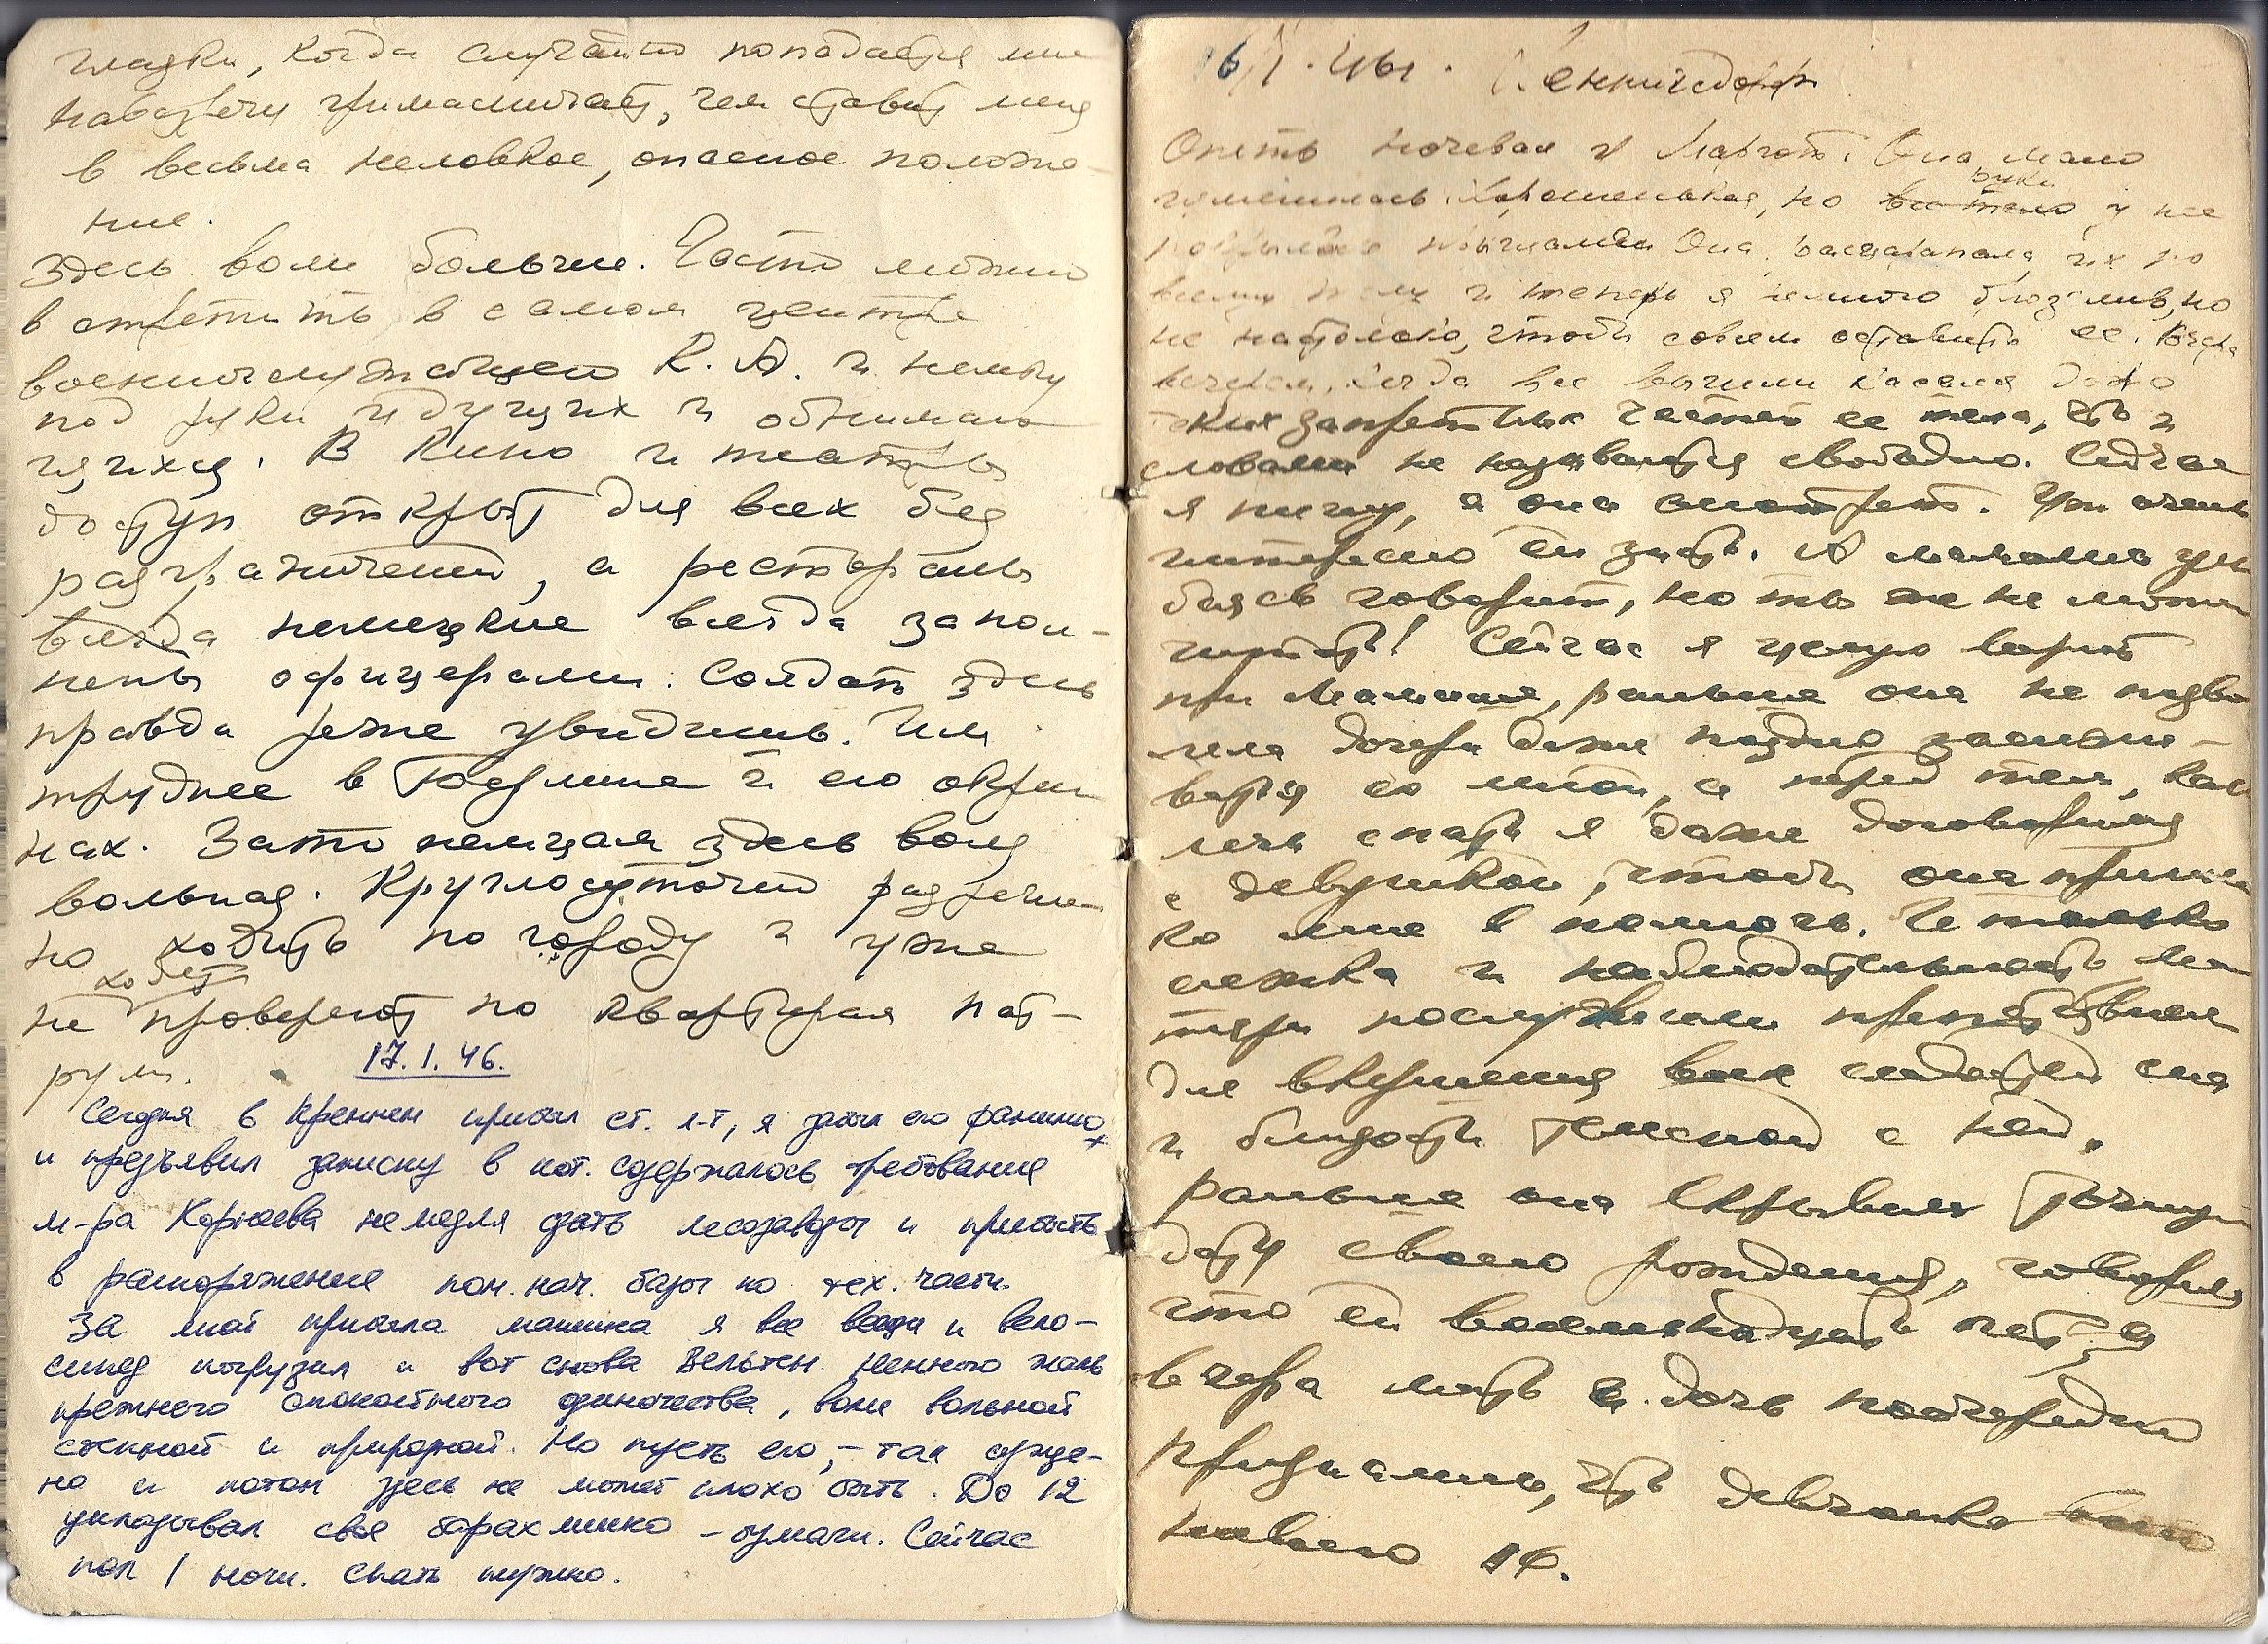 глазки, когда случайно попадается мне
навстречу гримасничает, чем ставит меня
в весьма неловкое, опасное положе-
ние.
Здесь воли больше. Часто можно
встретить в самом центре
военнослужащего К.А. и немку
под руки идущих и обнимаю-
щихся. В кино и театры
доступ открыт для всех без
разграничений, а рестораны
всегда немецкие всегда запол-
нены офицерами. Солдат здесь
правда реже увидишь. Им
труднее в Берлине и его окраи
нах. Зато немцам здесь воля
вольная. Круглосуточно разреше-
но ходить по городу и уже
не проверяют по квартирам пат-
рули.
17.1.46.
Сегодня в Креммен прибыл ст. л-т, я забыл его фамилию
и предъявил записку в кот. содержалось требование
м-ра Корнеева немедля сдать лесозаводы и прибыть
в распоряжение пом. нач. базы по тех. части.
За мной пришла машина я все вещи и вело-
сипед погрузил и вот снова Вельтен. Немного жаль
прежнего спокойного одиночества, воли вольной
степной и природной. Но пусть его, – так сужде-
но и потом здесь не может плохо быть. До 12
укладывал свое барахлишко – бумаги. Сейчас
пол 1 ночи. Спать нужно.
16/I. 46г. Хеннигсдорф
Опять ночевал у Маргот. Она мало
изменилась. Хорошенькая, но все тело руки у нее
покрылись прыщами. Она расцарапала их по
всему телу и теперь я немного брезглив, но
не настолько, чтобы совсем оставить ее. Вчера
вечером, когда все вышли касался даже
таких запретных частей ее тела, что и
словами не называются свободно. Сейчас
я пишу, а она смотрит. Уж очень
интересно ей знать. А мамаша улы
баясь говорит, но ты же не можешь
читать! Сейчас я целую
при мамаше, раньше она не позво
ляла дочери даже поздно засижи-
ваться со мной, а перед тем, как
лечь спать я даже договорился
с девушкой, чтобы она пришла
ко мне в полночь. И только
слежка и наблюдательность ма
тери послужили препятствием
для вкушения всех сладостей сна
и близости телесной с ней.
Раньше она скрывала точную
дату своего рождения, говорила
что ей восемнадцать лет, а
вчера мать и дочь поочередно
признались, что девчонке всего
навсего 16.